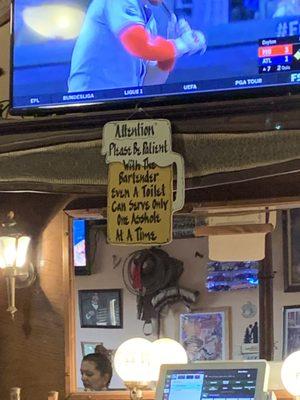 #F
Dayton
PHI 3
ATL 3
7 2 Outs
EFL BUNDESLIGA LIGUE 1 UEFA PGA TOUR
Attention
Please Be Patient
With the
Bartender
Even A Toilet
Can Serve Only
One Asshole
At A Time